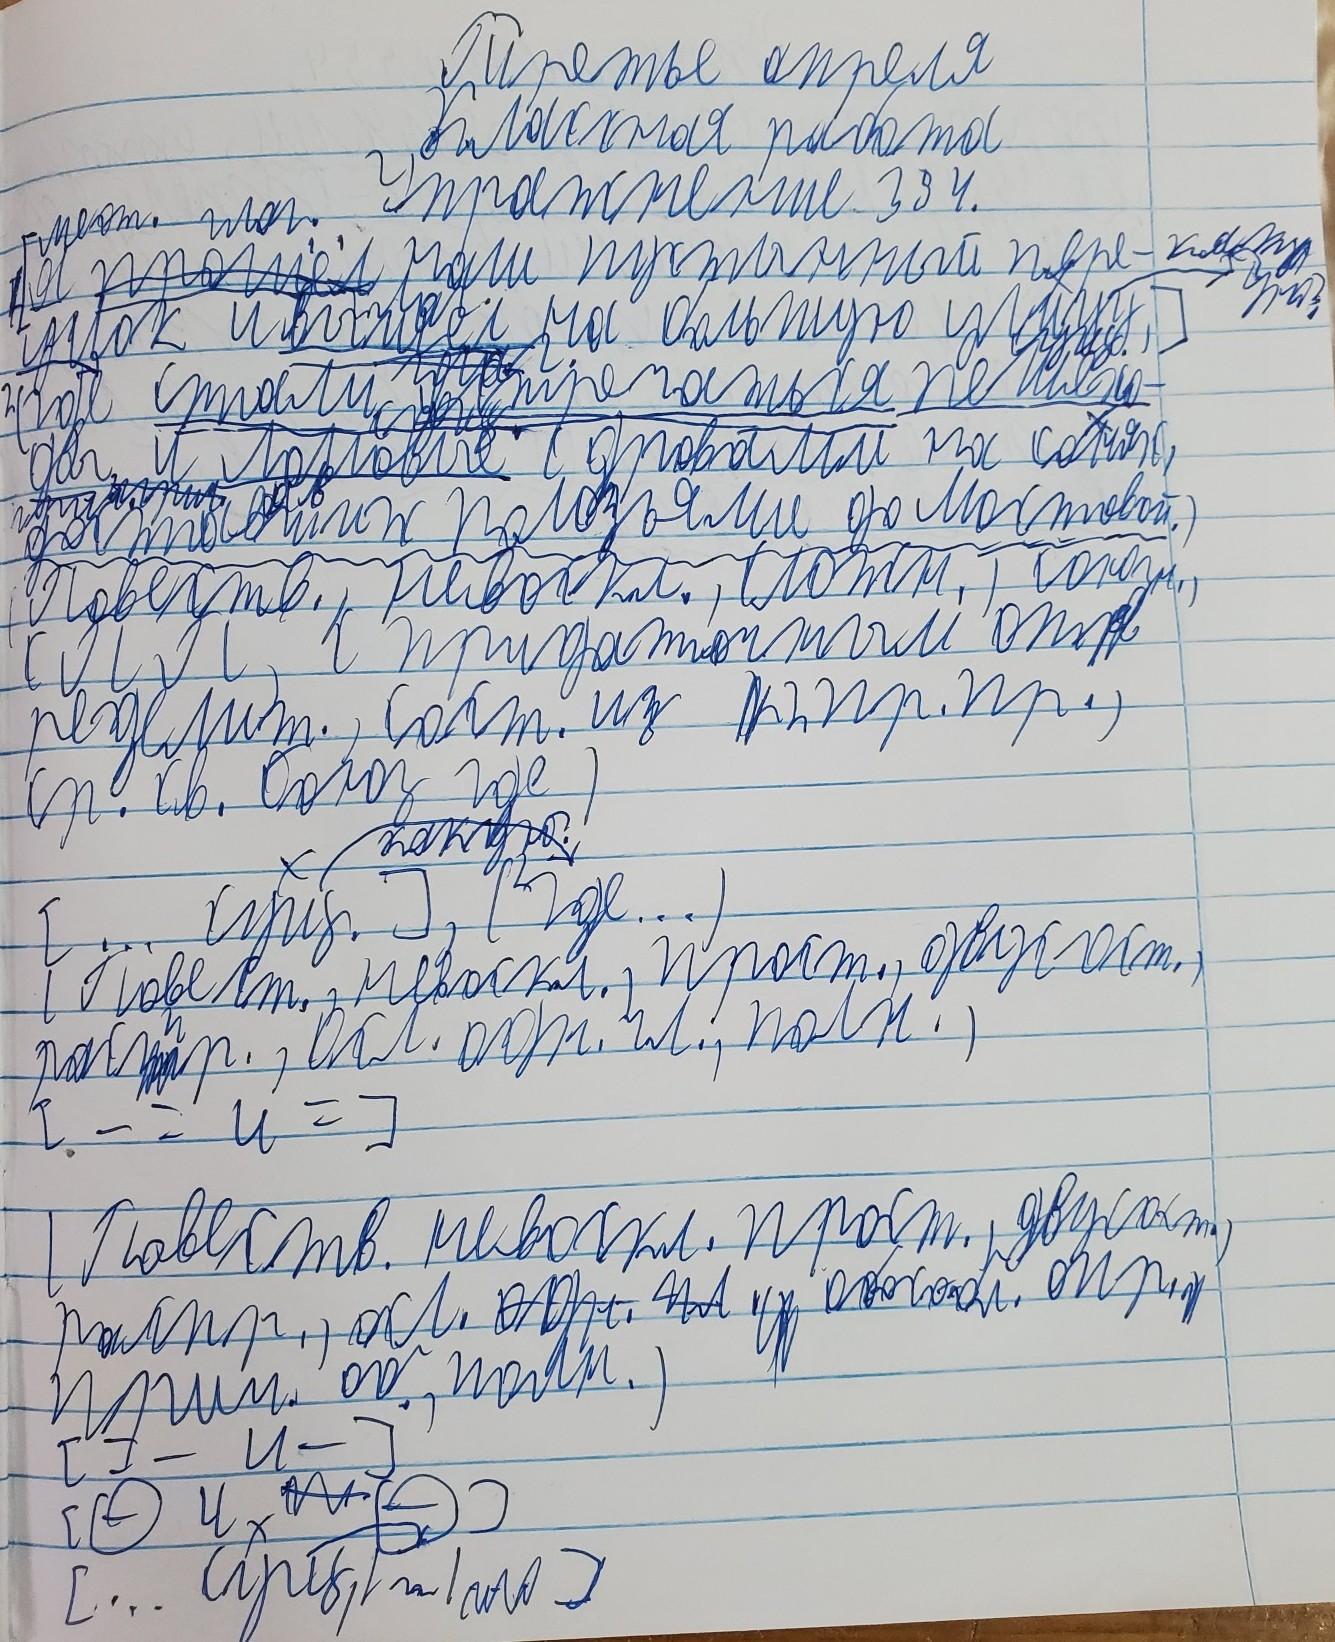 Третье апреля
Классная работа
Упражнение 394.
мест. глаг.
1[Я прошёл наш пустынный пере-
улок и вышел на большую улицу,]
2(где стали встречаться пешехо-
ды и ломовые с дровами на санях,
достававших полозьями до мостовой.)
(Повеств., невоскл., сложн., союзн.,
СПП, с придаточным опре
делит., сост. из 2 пр.пр.,
ср. св. союз где)
[... сущ. ], (где...)
(Повест., невоскл., прост., двусост.,
распр., осл. одн. чл., полн.)
[ — = и = ]
(Повеств. невоскл. прост., двусост.,
распр., осл. одн. чл и обособл. опр.,
прич. об., полн.)
[ = — и — ]
[ и ]
[... сущ, |~|]